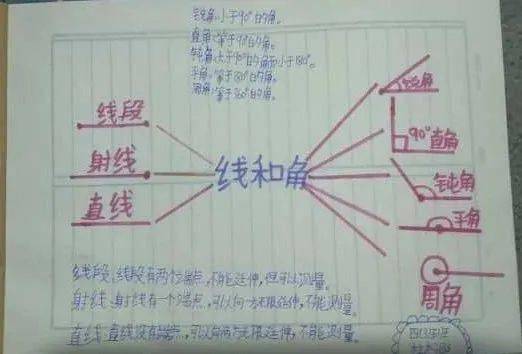 锐角:小于90°的角。
直角:等于90°的角。
钝角:大于90°的角而小于180°。
平角:等于180°的角。
周角:等于360°的角。
线段
射线
直线
线和角
锐角
90°直角
钝角
平角
周角
线段:线段有两个端点,不能延伸,但可以测量。
射线:射线有一个端点,可以向一方无限延伸,不能测量。
直线:直线没有端点,可以向两方无限延伸,不能测量。